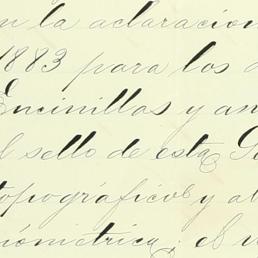 n la aclaracion
1883 para los
Encinillas y an
l sello de esta Se
topográficos y al
iométrica; el